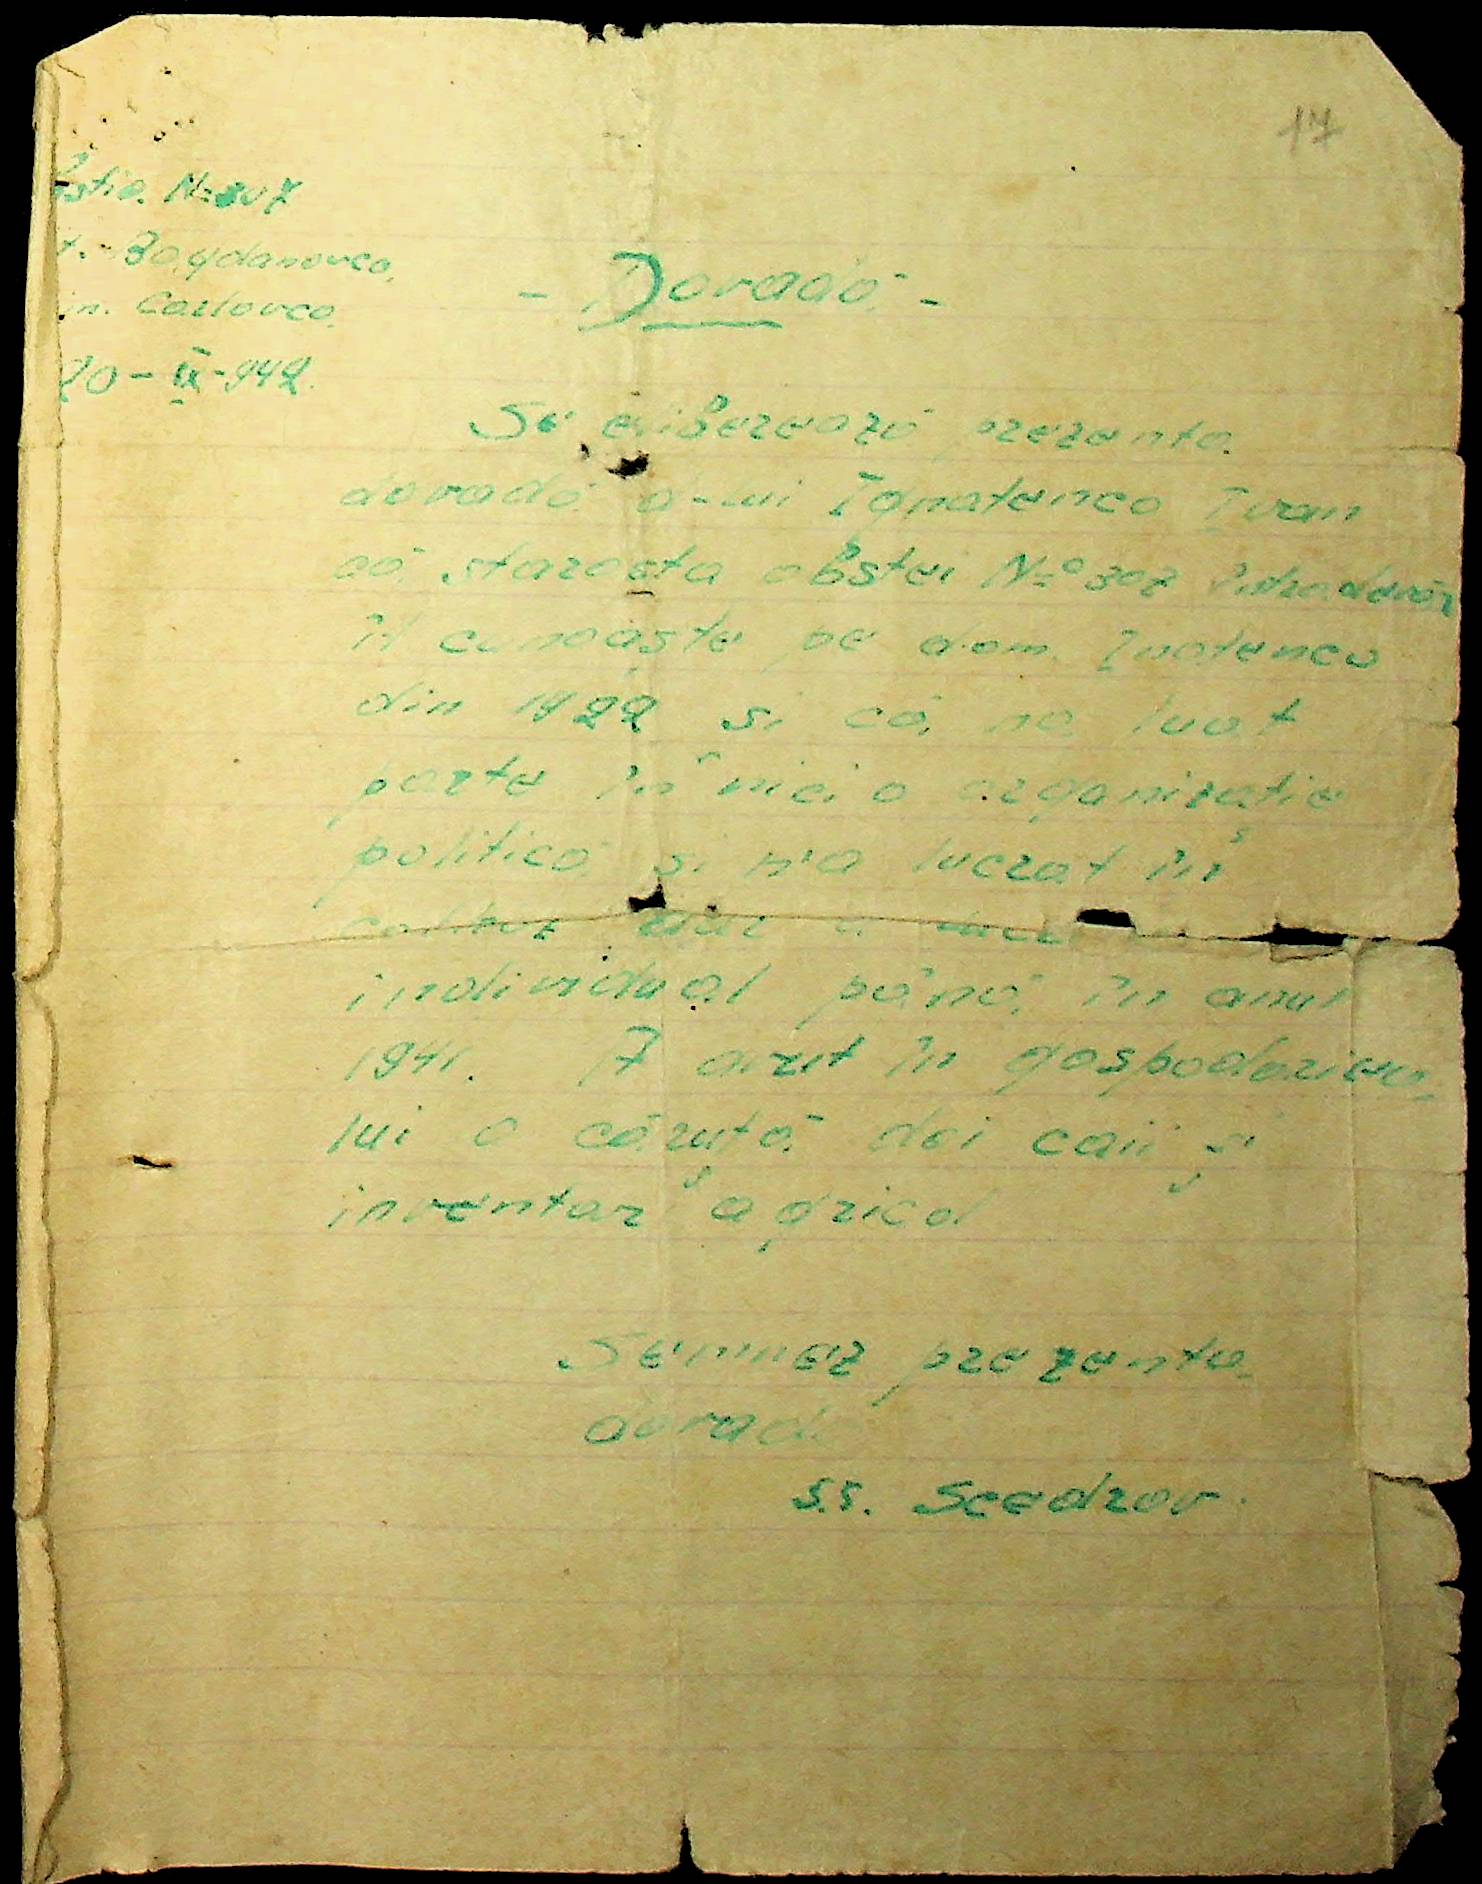 17
obștia. N=307
t. Bogdanovca,
m. Carlovca.
20-IX-942.
- Dovadă -
Se eliberează prezenta
dovadă d-lui Ignatenco Ivan
că starosta obștei N=º 307
îl cunoaște pe dom. Ignatenco
din 1922 și că na luat
parte în nici o organizație
politică și n'a lucrat în
individual până în anul
1941. A avut în gospodariea
lui o căruță doi caii și
inventar agricol
Semnez prezenta
dovadă
s.s. Scedrov.